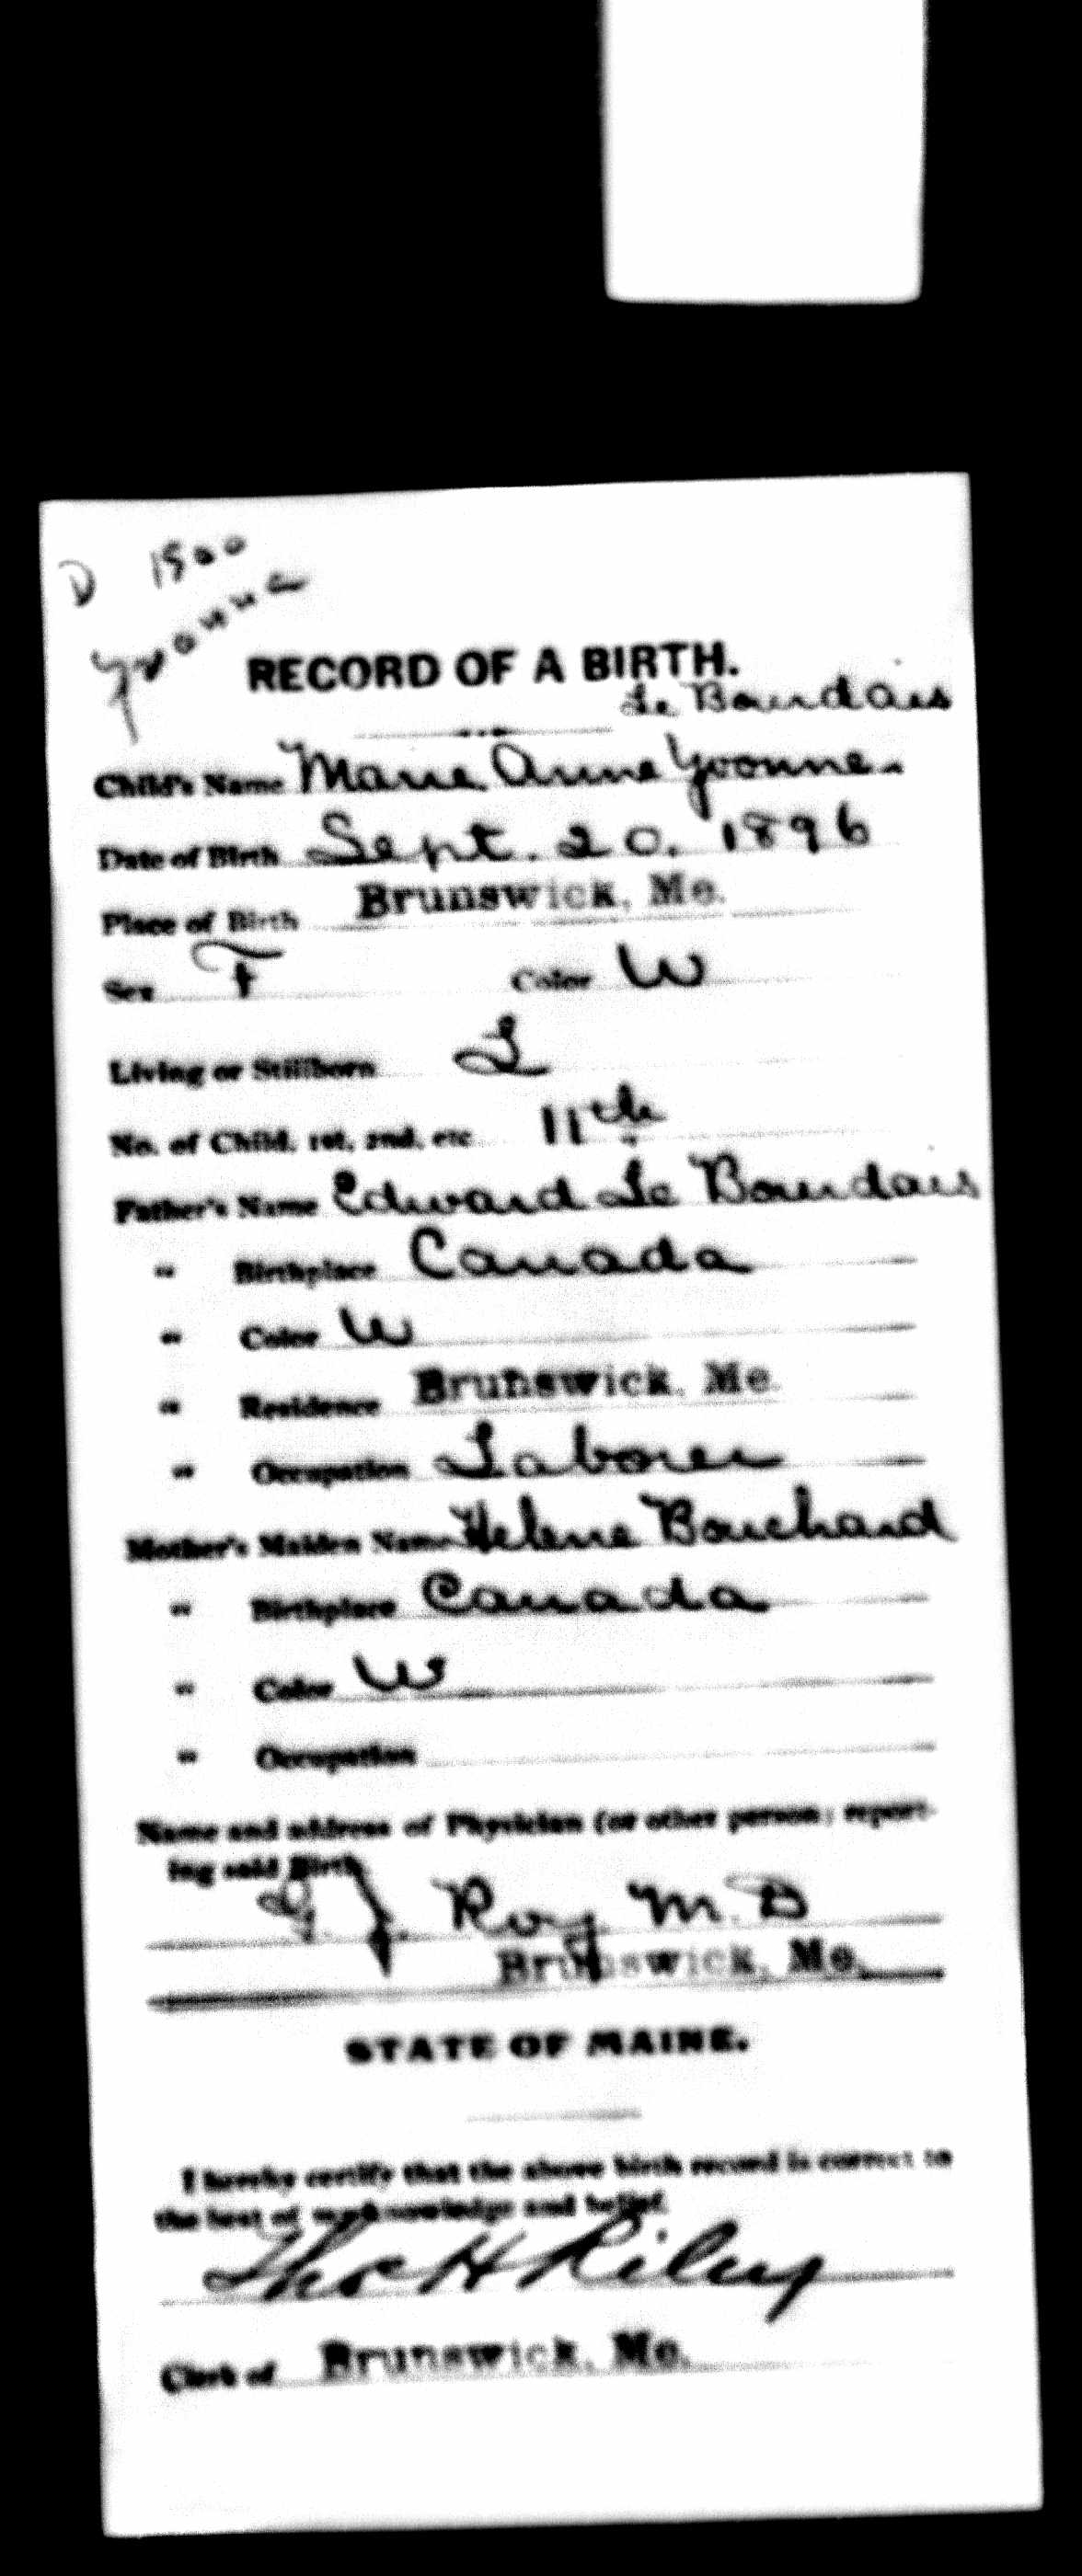 D 1900
Yvonne
RECORD OF A BIRTH.
Le Bourdais
Child's Name Marie Anne Yvonne.
Date of Birth Sept. 20. 1896
Place of Birth Brunswick, Me.
Sex F Color W
Living or Stillborn L
No. of Child, 1st, 2nd, etc. 11th
Father's Name Edward Le Bourdais
" Birthplace Canada
" Color W
" Residence Brunswick, Me.
" Occupation Laborer
Mother's Maiden Name Helene Bouchard
" Birthplace Canada
" Color W
" Occupation
Name and address of Physician (or other person) report-
ing said Birth
Roy M.D
Brunswick, Me.
STATE OF MAINE.
I hereby certify that the above birth record is correct to
the best of my knowledge and belief.
Thos H Riley
Clerk of Brunswick, Me.